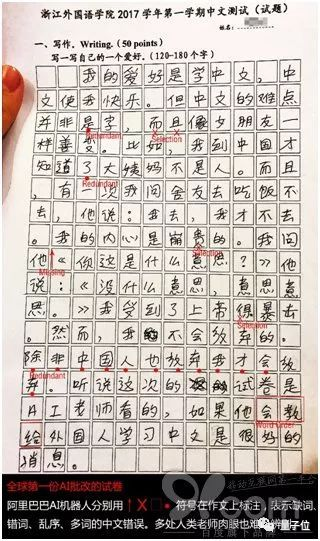 浙江外国语学院2017学年第一学期中文测试（试题）
一、写作。Writing.（50 points）
写一写自己的一个爱好。（120-180个字）
我的爱好是学中文，中
文使我快乐。但中文的难点
并非是字，而且像女朋友一
样善变。比如，我到中国才
知道了大姨妈不是人。而且
，有一次我问舍友去吃饭不
去，他说：我去，我才不去
。我的内心是崩贵的。我问
他《你这是什么意思？》他
说：《没什么意思，意思意
思。》我受到了上帝很暴击
。然而，我不会放弃的。
除非中国人也放弃我才会放
弃。听说这次的试卷是
AI老师看的，如果他会教
给外国人学习中文是很好的
消息。
Redundant
Selection
Redundant
Selection
Missing
Selection
Redundant
Word Order
全球第一份AI批改的试卷
阿里巴巴AI机器人分别用↑ X □ ● 符号在作文上标注，表示缺词、
错词、乱序、多词的中文错误。多处人类老师肉眼也难辨别
量子位